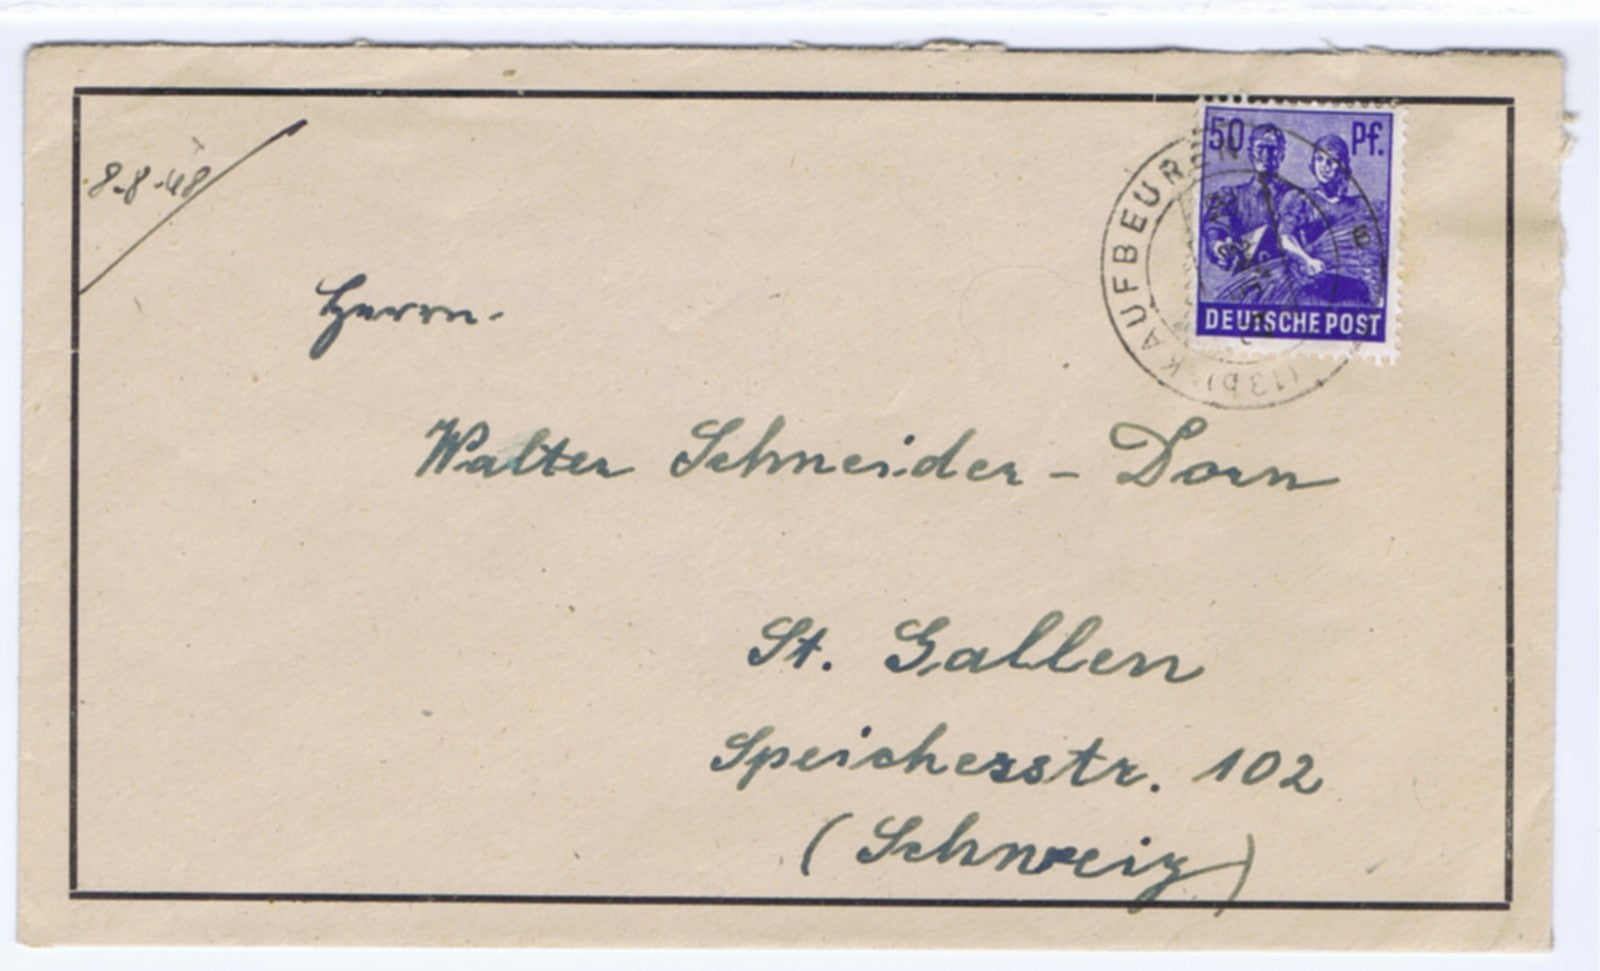 8-8-48
50 Pf.
DEUTSCHE POST
(13b) KAUFBEUREN
Herrn.
Walter Schneider-Dorn
St. Gallen
Speicherstr. 102
(Schweiz)